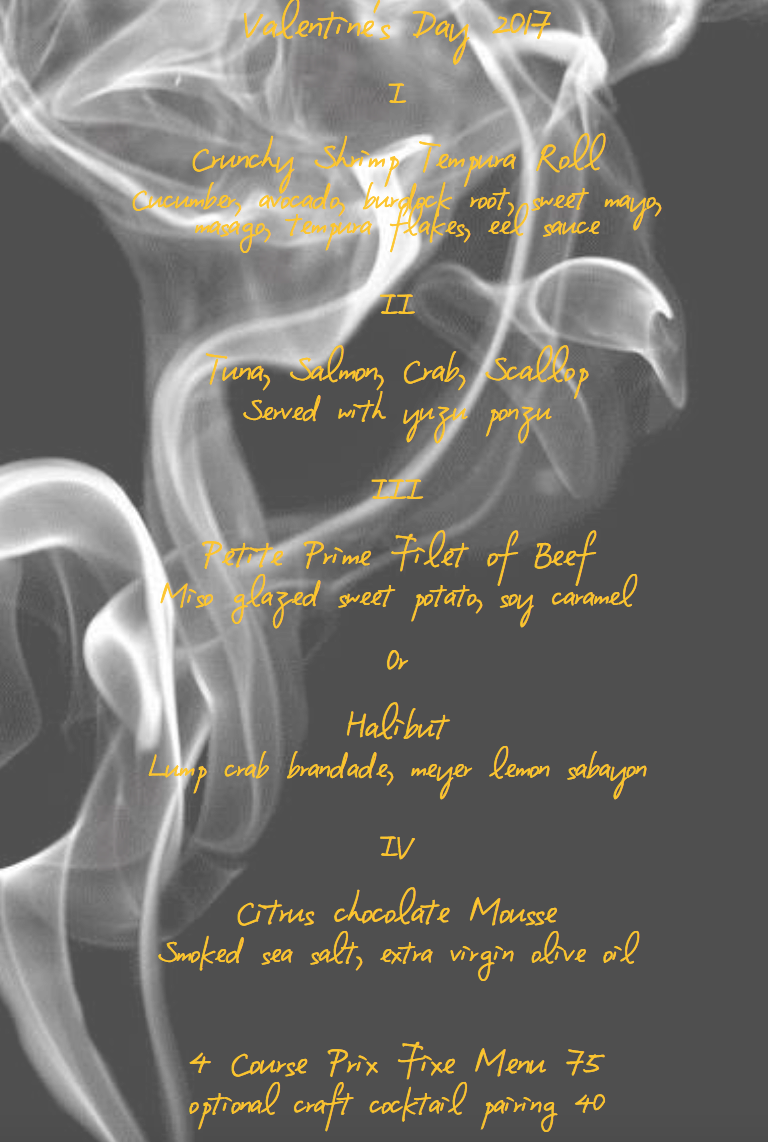 Valentine's Day 2017
I
Crunchy Shrimp Tempura Roll
Cucumber, avocado, burdock root, sweet mayo,
masago, tempura flakes, eel sauce
II
Tuna, Salmon, Crab, Scallop
Served with yuzu ponzu
III
Petite Prime Filet of Beef
Miso glazed sweet potato, soy caramel
Or
Halibut
Lump crab brandade, meyer lemon sabayon
IV
Citrus chocolate Mousse
Smoked sea salt, extra virgin olive oil
4 Course Prix Fixe Menu 75
optional craft cocktail pairing 40